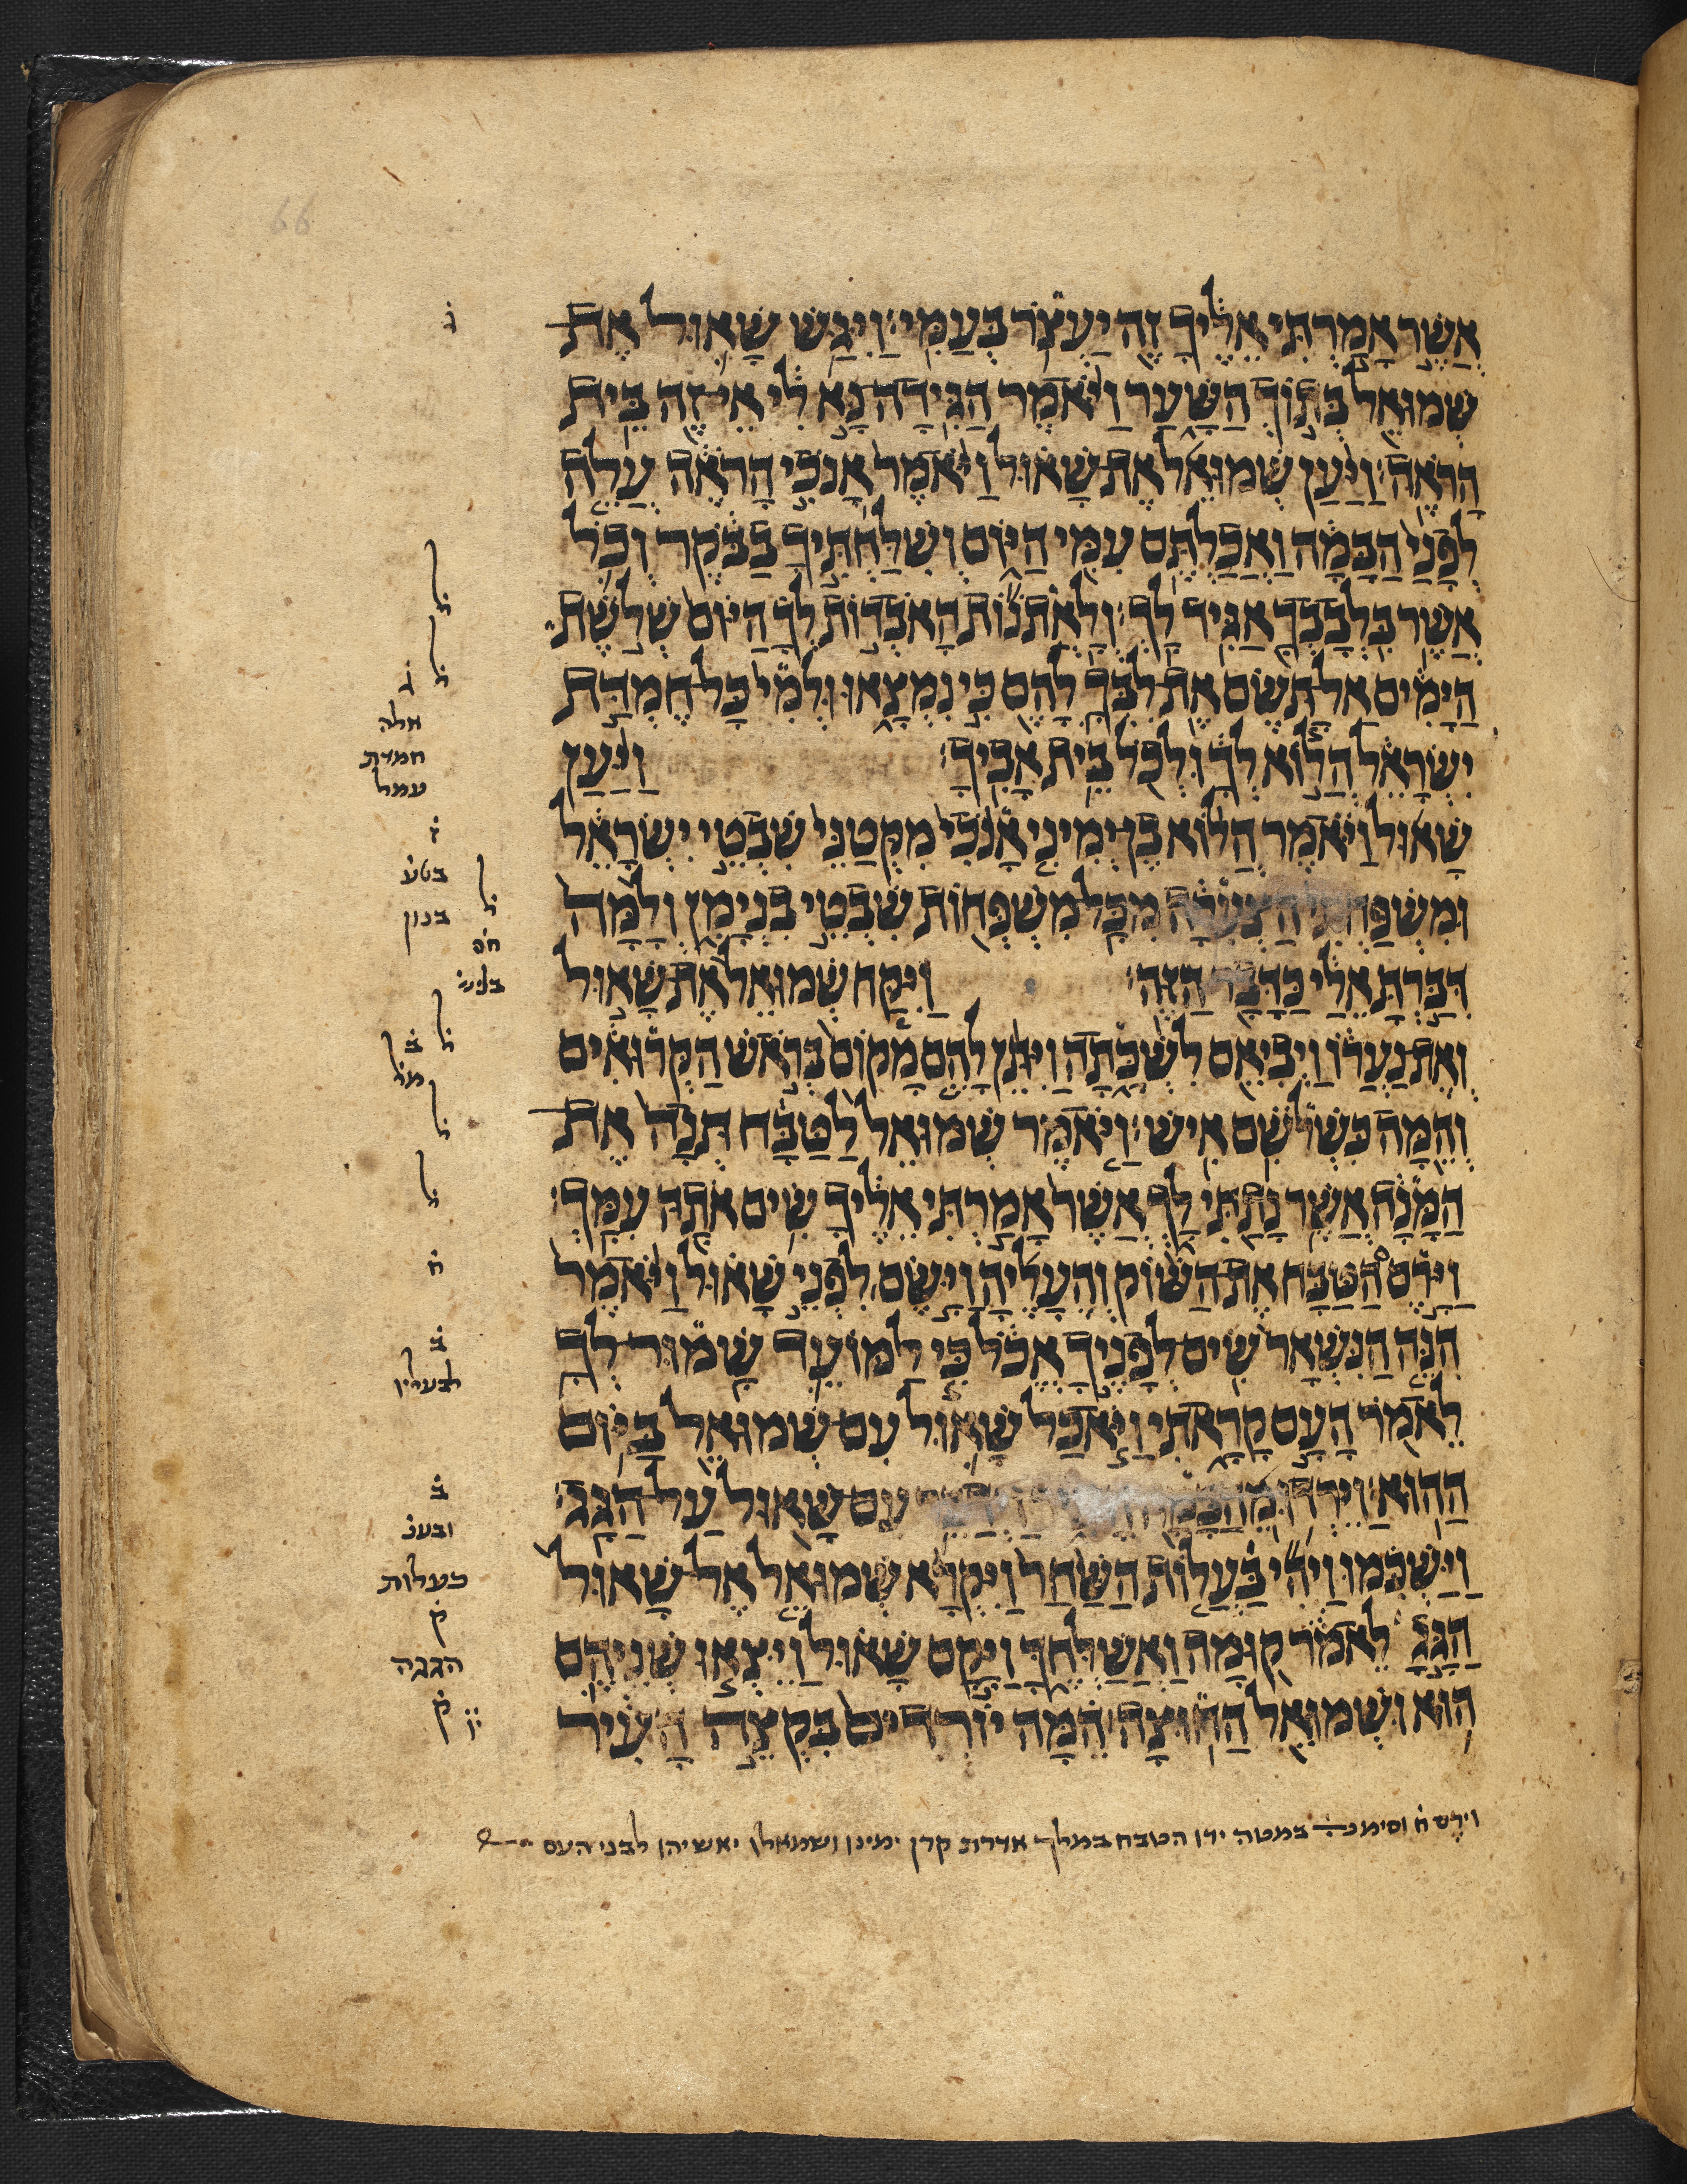 66
אֲשֶׁר אָמַרְתִּי אֵלֶיךָ זֶה יַעְצֹר בְּעַמִּי׃ וַיִּגַּשׁ שָׁאוּל אֶת
שְׁמוּאֵל בְּתוֹךְ הַשָּׁעַר וַיֹּאמֶר הַגִּידָה נָּא לִי אֵי זֶה בֵּית
הָרֹאֶה׃ וַיַּעַן שְׁמוּאֵל אֶת שָׁאוּל וַיֹּאמֶר אָנֹכִי הָרֹאֶה עֲלֵה
לְפָנַי הַבָּמָה וַאֲכַלְתֶּם עִמִּי הַיּוֹם וְשִׁלַּחְתִּיךָ בַבֹּקֶר וְכֹל
אֲשֶׁר בִּלְבָבְךָ אַגִּיד לָךְ׃ וְלָאֲתֹנוֹת הָאֹבְדוֹת לְךָ הַיּוֹם שְׁלֹשֶׁת
הַיָּמִים אַל תָּשֶׂם אֶת לִבְּךָ לָהֶם כִּי נִמְצָאוּ וּלְמִי כָּל חֶמְדַּת
יִשְׂרָאֵל הֲלוֹא לְךָ וּלְכֹל בֵּית אָבִיךָ׃ וַיַּעַן
שָׁאוּל וַיֹּאמֶר הֲלוֹא בֶן יְמִינִי אָנֹכִי מִקְּטַנֵּי שִׁבְטֵי יִשְׂרָאֵל
וּמִשְׁפַּחְתִּי הַצְּעִרָה מִכָּל מִשְׁפְּחוֹת שִׁבְטֵי בִנְיָמִן וְלָמָּה
דִּבַּרְתָּ אֵלַי כַּדָּבָר הַזֶּה׃ וַיִּקַּח שְׁמוּאֵל אֶת שָׁאוּל
וְאֶת נַעֲרוֹ וַיְבִיאֵם לִשְׁכָּתָה וַיִּתֵּן לָהֶם מָקוֹם בְּרֹאשׁ הַקְּרוּאִים
וְהֵמָּה כִּשְׁלֹשִׁם אִישׁ׃ וַיֹּאמֶר שְׁמוּאֵל לַטַּבָּח תְּנָה אֶת
הַמָּנָה אֲשֶׁר נָתַתִּי לָךְ אֲשֶׁר אָמַרְתִּי אֵלֶיךָ שִׂים אֹתָהּ עִמָּךְ׃
וַיָּרֶם הַטַּבָּח אֶת הַשּׁוֹק וְהֶעָלֶיהָ וַיָּשֶׂם לִפְנֵי שָׁאוּל וַיֹּאמֶר
הִנֵּה הַנִּשְׁאָר שִׂים לְפָנֶיךָ אֱכֹל כִּי לַמּוֹעֵד שָׁמוּר לְךָ
לֵאמֹר הָעָם קָרָאתִי וַיֹּאכַל שָׁאוּל עִם שְׁמוּאֵל בַּיּוֹם
הַהוּא׃ וַיֵּרְדוּ מֵהַבָּמָה עִם שָׁאוּל עַל הַגָּג׃
וַיַּשְׁכִּמוּ וַיְהִי כַּעֲלוֹת הַשַּׁחַר וַיִּקְרָא שְׁמוּאֵל אֶל שָׁאוּל
הַגָּגָ לֵאמֹר קוּמָה וַאֲשַׁלְּחֶךָּ וַיָּקָם שָׁאוּל וַיֵּצְאוּ שְׁנֵיהֶם
הוּא וּשְׁמוּאֵל הַחוּצָה׃ הֵמָּה יוֹרְדִים בִּקְצֵה הָעִיר
ג
ל
ל
ג
אלה
חמדת
עמל
ז
בטע
ל
בנון
חס
בליש
ל
ב
מל
ל
ל
ח
ב
לבעלין
ב
ובענ
כעלות
ק
הגגה
ק
וירם ח וסימנ במטה ידו הטבח במלך אדרת קרן ימינו ושמאלו יאשיהו לבני העם